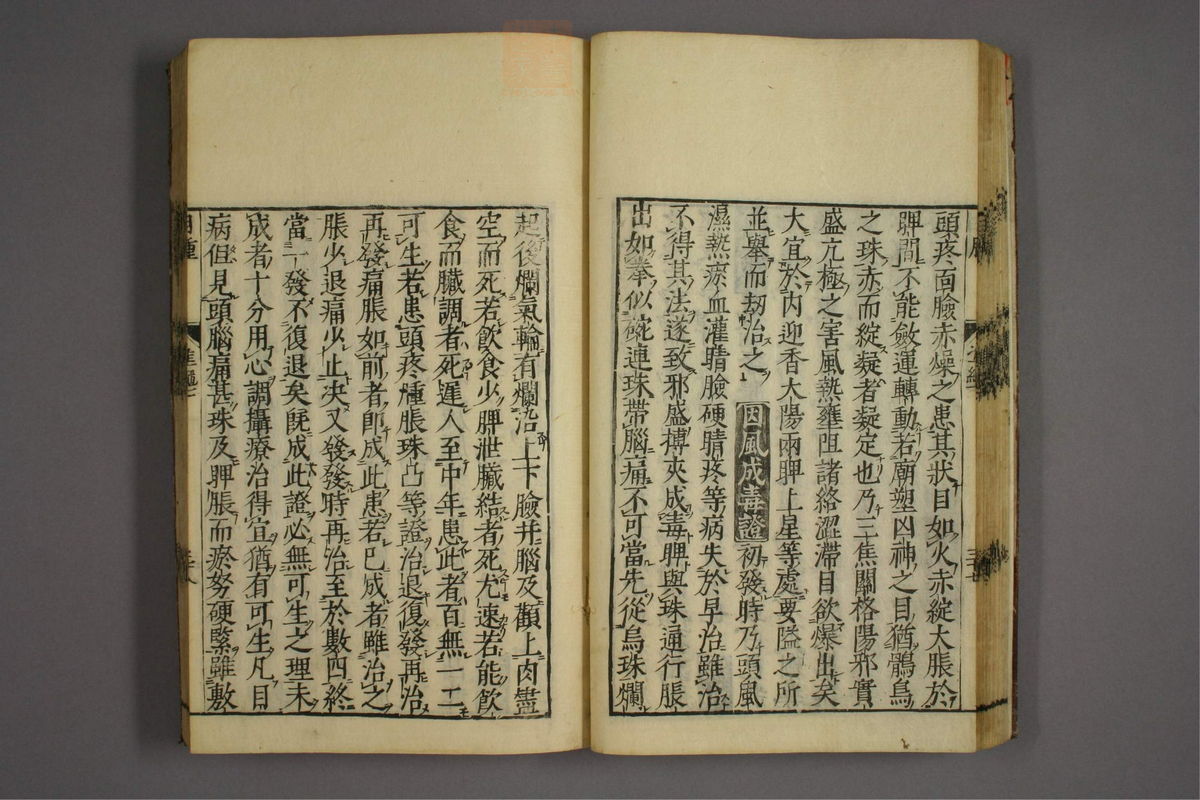 頭疼面臉赤燥之患其狀目如火赤綻大脹於
睥間不能斂運轉動若廟塑凶神之目猶鶻鳥
之珠赤而綻凝者凝定也乃三焦關格陽邪實
盛亢極之害風熱壅阻諸絡澀滯目欲爆出矣
大宜於內迎香太陽兩睥上星等處要隘之所
並舉而刼治之
因風成毒證初發時乃頭風
濕熱瘀血灌睛臉硬睛疼等病失於早治雖治
不得其法遂致邪盛搏夾成毒睥與珠通行脹
出如拳似碗連珠帶腦痛不可當先從烏珠爛
起後爛氣輪有爛沿上下臉并腦及顴上肉盡
空而死若飲食少脾泄臟結者死尤速若能飲
食而臟調者死遲人至中年患此者百無一二
可生若患頭疼腫脹珠凸等證治退復發再治
再發痛脹如前者即成此患若已成者雖治之
脹少退痛少止决又發發時再治至於數四終
當一發不復退矣既成此證必無可生之理未
成者十分用心調攝療治得宜猶有可生凡目
病但見頭腦痛甚珠及睥脹而瘀努硬緊雖敷
目腫